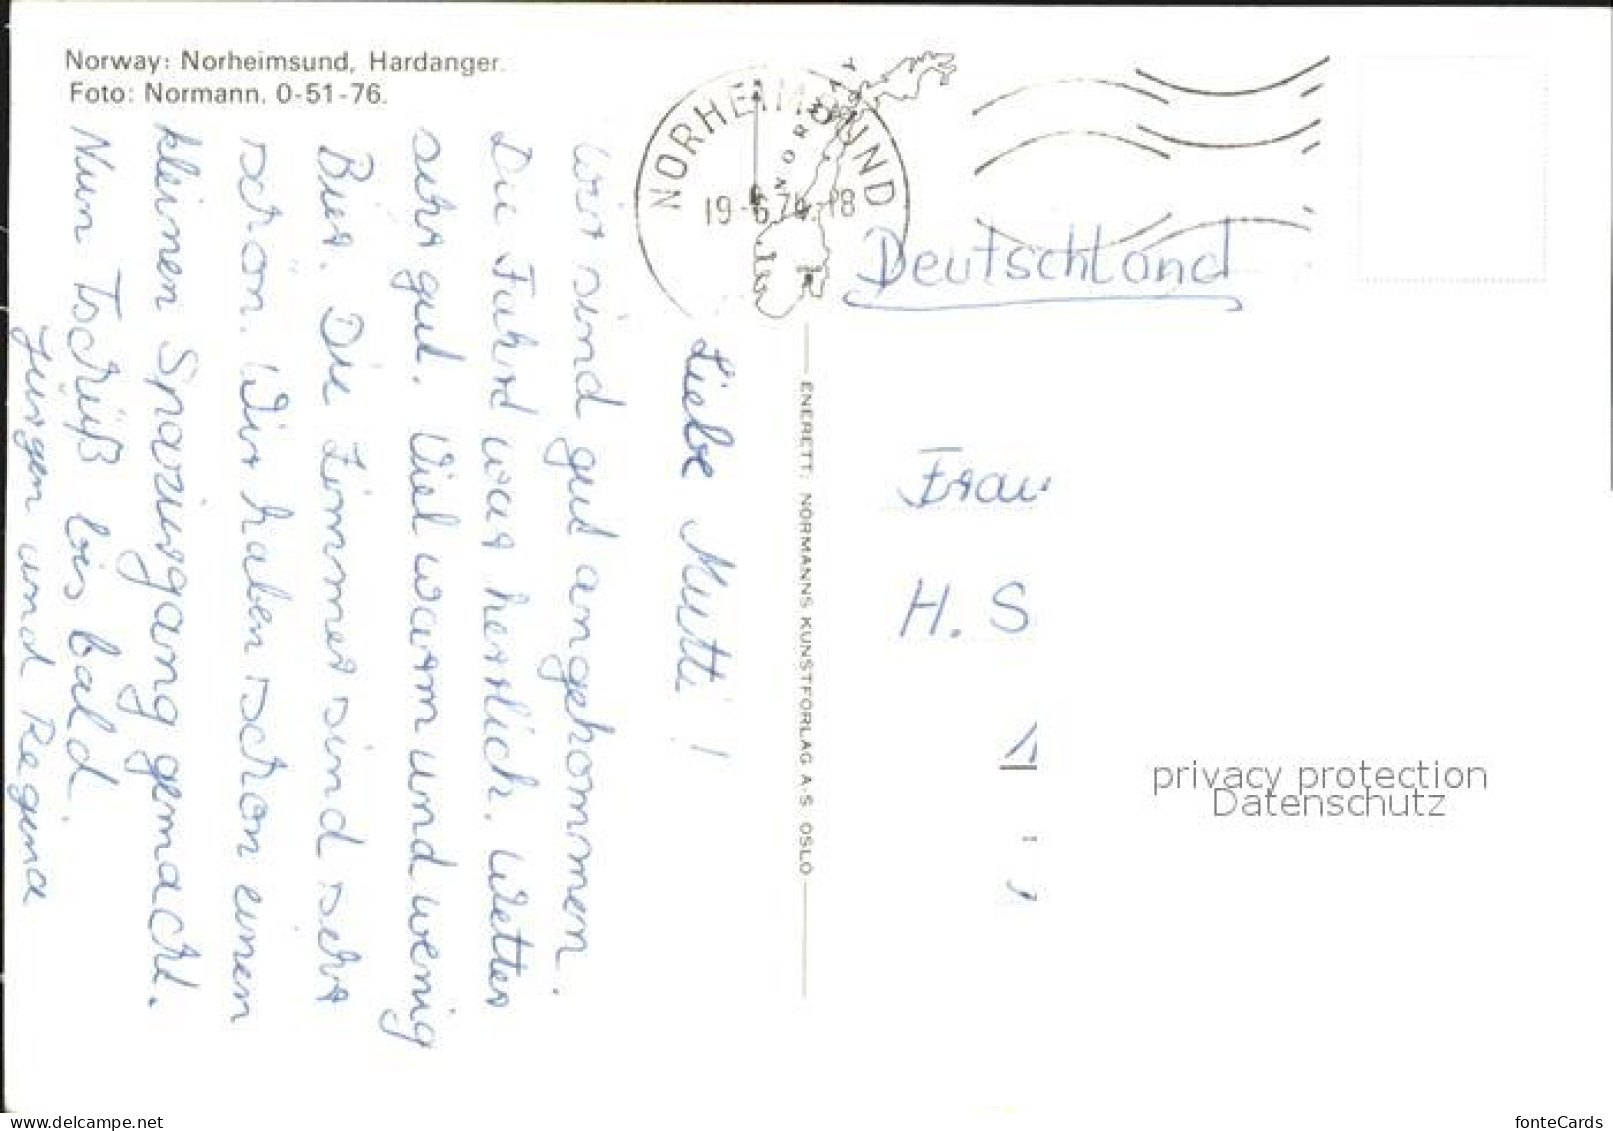 Norway: Norheimsund, Hardanger.
Foto: Normann. O-51-76.
NORHEIMSUND
NORWAY
19-6.74.-18
Deutschland
Liebe Mutti!
Wir sind gut angekommen.
Die Fahrt war herrlich. Wetter
sehr gut. Viel warm und wenig
Bier. Die Zimmer sind sehr
schön. Wir haben schon einen
kleinen Spaziergang gemacht.
Nun Tschüß bis bald.
Jürgen und Regina
ENERETT: NORMANNS KUNSTFORLAG A·S OSLO
Frau
H. S
1
privacy protection
Datenschutz
www.delcampe.net
fonteCards